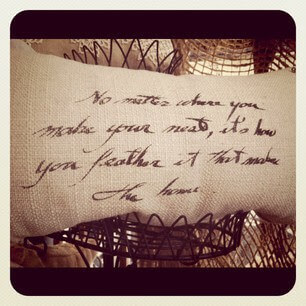 No matter where you
make your nest, it's how
you feather it that makes
the home.